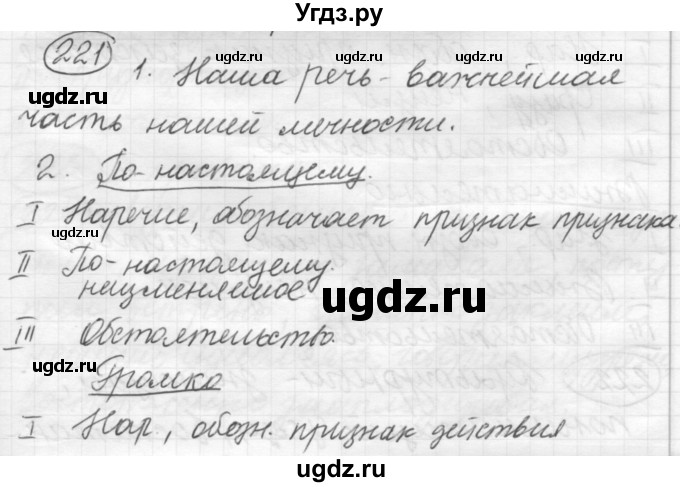 Угдз.ру
221
1. Наша речь - важнейшая
часть нашей личности.
2. По-настоящему.
I Наречие, обозначает признак признака.
II По-настоящему.
неизменяемое
III Обстоятельство.
Громко
I Нар., обозн. признак действия
ugdz.ru
ugdz.ru
ugdz.ru
ugdz.ru
ugdz.ru
ugdz.ru
ugdz.ru
ugdz.ru
ugdz.ru
ugdz.ru
ugdz.ru